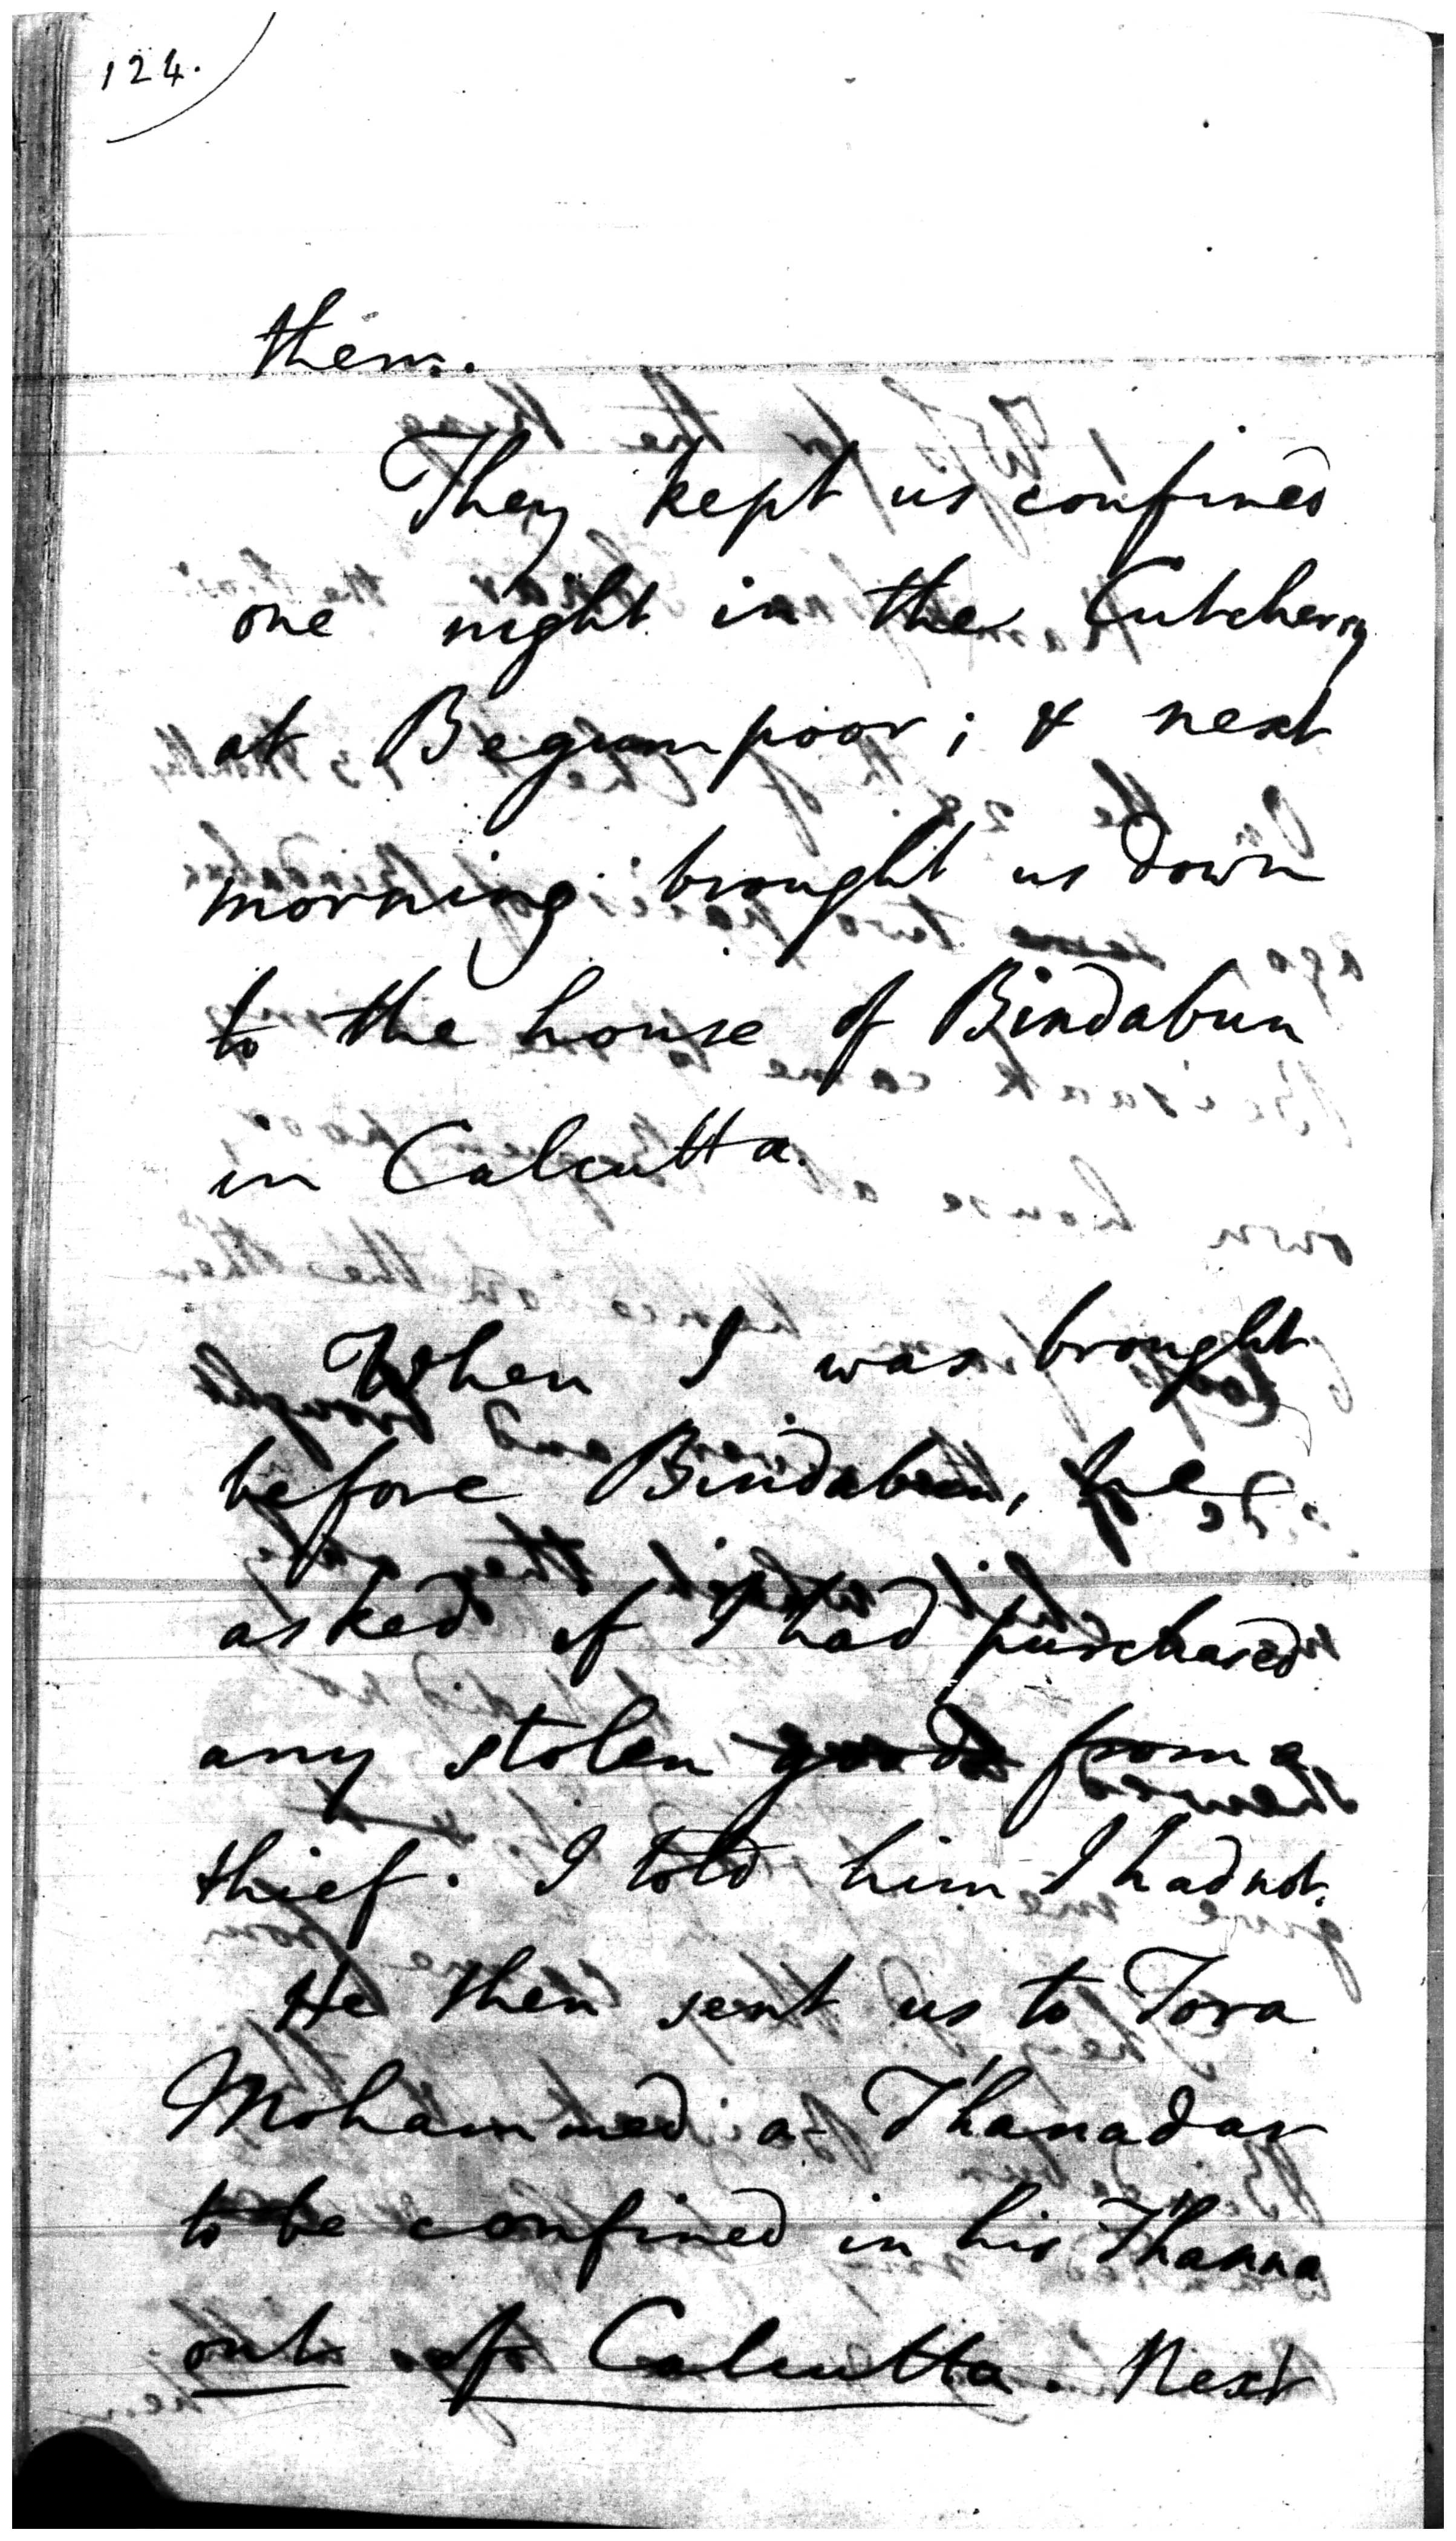 124.
them.
They kept us confined
one night in the Cutcherry
at Begumpoor; & next
morning brought us down
to the house of Bindabun
in Calcutta.
When I was brought
before Bindabun, he
asked if I had purchased
any stolen goods from a
thief. I told him I had not.
He then sent us to Tora
Mohammed a Thanadar
to be confined in his Thanna
out of Calcutta. Next